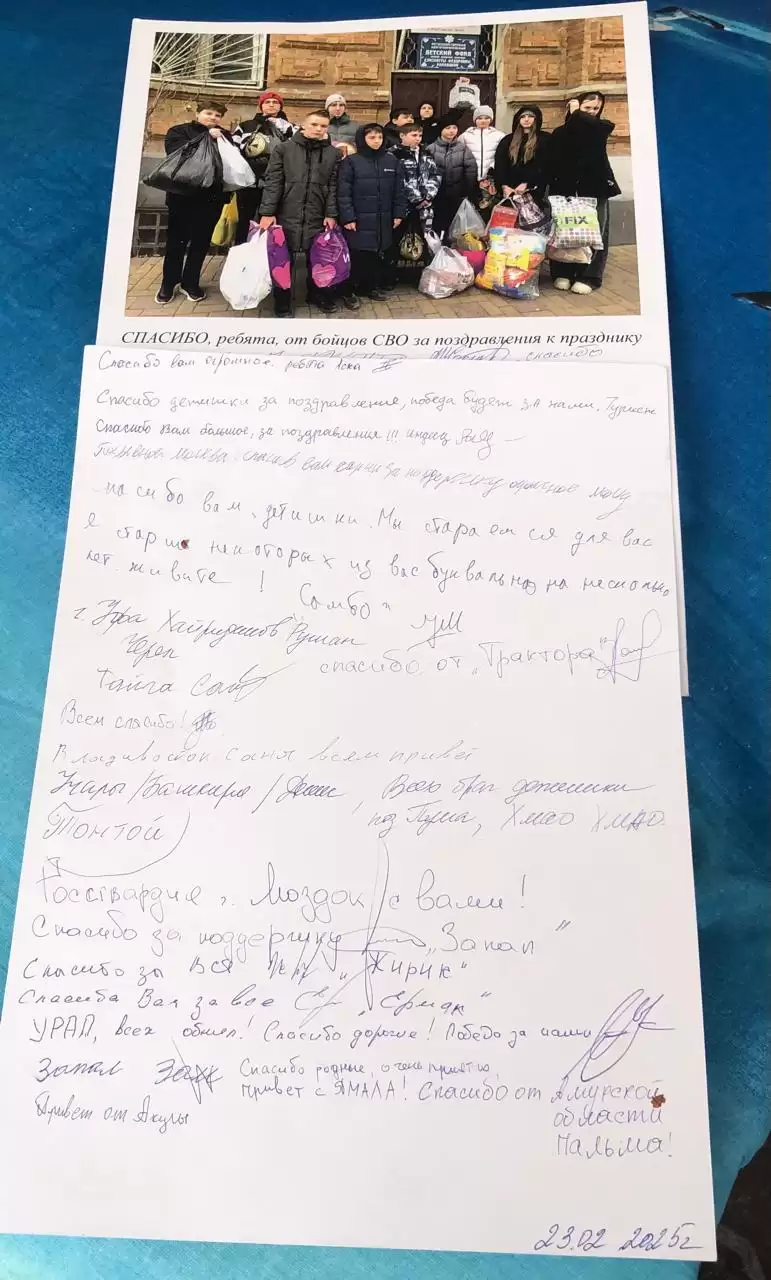 ДЕТСКИЙ ФОНД
FiX
СПАСИБО, ребята, от бойцов СВО за поздравления к празднику
Спасибо вам огромное. ребята спасибо
Спасибо детишки за поздравление, победа будет за нами.
Спасибо Вам большое, за поздравления!!! индиц
Позывной Москва. спасибо вам парни за поддержку огромное
спасибо вам, детишки. Мы стараемся для вас
я старше некоторых из вас буквально на несколько
лет. живите !
"Самбо"
г. Уфа Руслан
Череп
спасибо от "Трактора"
Тайга
Всем спасибо!
Владивосток Саня всем привет
Учалы/Башкирия/Денис, Всею
поз Пума, ХМАО ХМАО.
Тонтой
Россгвардия г. Моздок с вами!
Спасибо за поддержку "Запал"
Спасибо за Вся "Жирик"
Спасиба Вам за все "Ермак"
УРАЛ, всех обнял! Спасибо дорогие! Победа за нами
Запал Спасибо родные, очень приятно,
Привет с ЯМАЛА! Спасибо от Амурской
области
Привет от Акулы
Пальма!
23.02 2025г